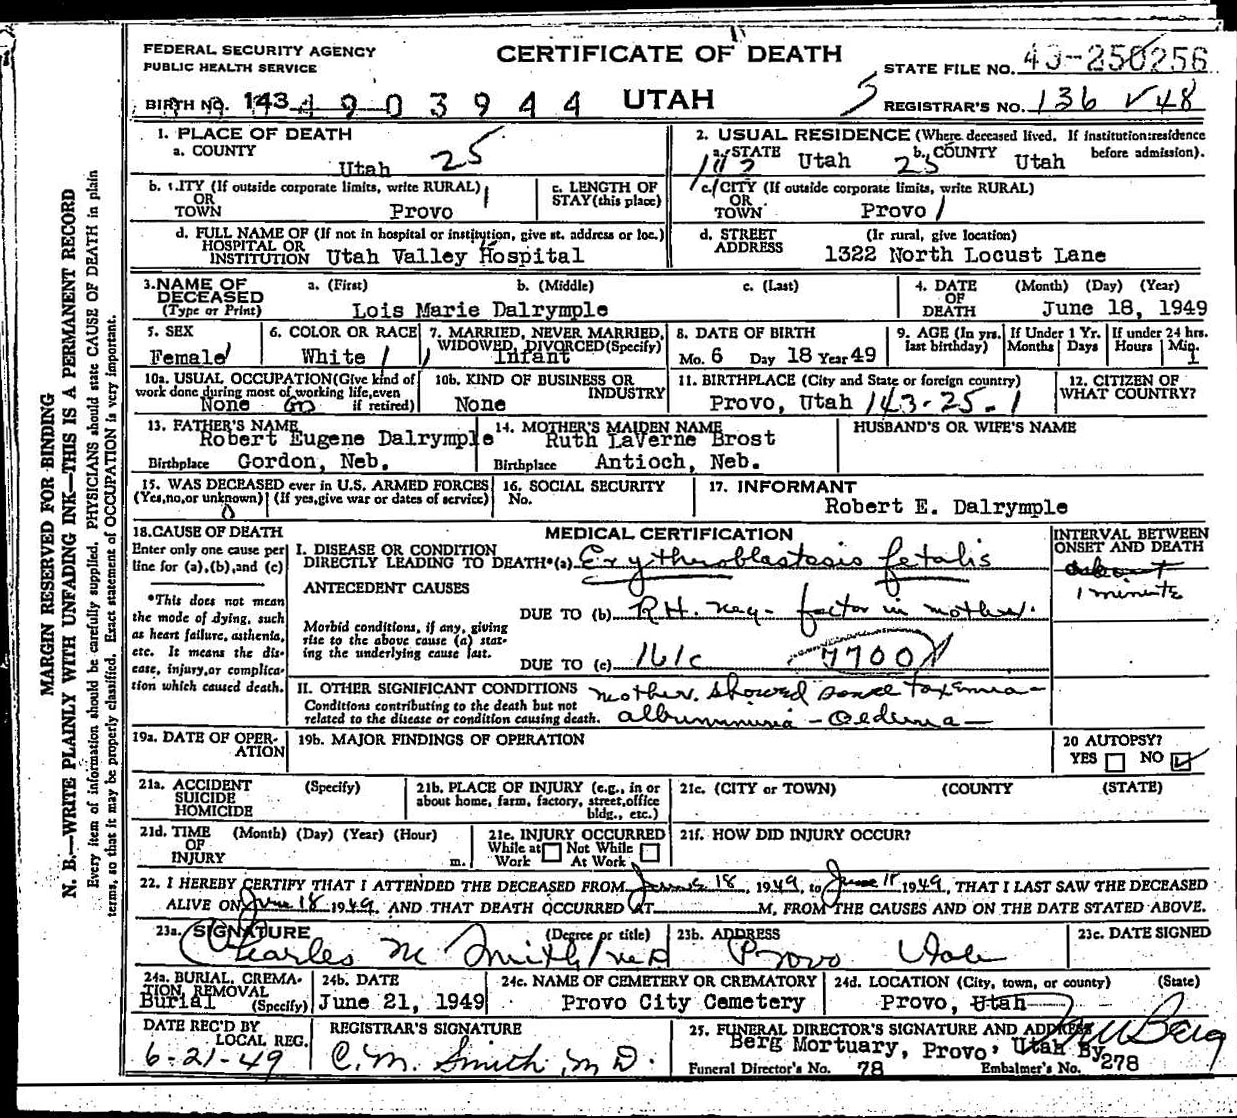 FEDERAL SECURITY AGENCY
PUBLIC HEALTH SERVICE
CERTIFICATE OF DEATH
STATE FILE NO.
BIRTH NO. 143 4 9 0 3 9 4 4 UTAH
REGISTRAR'S NO. 136 48
1. PLACE OF DEATH
a. COUNTY
Utah 25
2. USUAL RESIDENCE (Where deceased lived. If institution:residence before admission).
a. STATE Utah 25 b. COUNTY Utah
b. CITY (If outside corporate limits, write RURAL)
OR
TOWN Provo
c. LENGTH OF
STAY(this place)
c. CITY (If outside corporate limits, write RURAL)
OR
TOWN Provo
d. FULL NAME OF (If not in hospital or institution, give st. address or loc.)
HOSPITAL OR
INSTITUTION Utah Valley Hospital
d. STREET (Ir rural, give location)
ADDRESS 1322 North Locust Lane
3. NAME OF DECEASED (Type or Print)
a. (First) b. (Middle) c. (Last)
Lois Marie Dalrymple
4. DATE OF DEATH (Month) (Day) (Year)
June 18, 1949
5. SEX
Female
6. COLOR OR RACE
White
7. MARRIED, NEVER MARRIED, WIDOWED, DIVORCED(Specify)
Infant
8. DATE OF BIRTH
Mo. 6 Day 18 Year 49
9. AGE (In yrs. last birthday)
If Under 1 Yr. Months Days
If under 24 hrs. Hours Min.
1
10a. USUAL OCCUPATION(Give kind of work done during most of working life,even if retired)
None
10b. KIND OF BUSINESS OR INDUSTRY
None
11. BIRTHPLACE (City and State or foreign country)
Provo, Utah 143-25-1
12. CITIZEN OF WHAT COUNTRY?
13. FATHER'S NAME
Robert Eugene Dalrymple
Birthplace Gordon, Neb.
14. MOTHER'S MAIDEN NAME
Ruth LaVerne Brost
Birthplace Antioch, Neb.
HUSBAND'S OR WIFE'S NAME
15. WAS DECEASED ever in U.S. ARMED FORCES
(Yes,no,or unknown) (If yes,give war or dates of service)
0
16. SOCIAL SECURITY
No.
17. INFORMANT
Robert E. Dalrymple
18. CAUSE OF DEATH
Enter only one cause per line for (a),(b),and (c)
*This does not mean the mode of dying, such as heart failure, asthenia, etc. It means the disease, injury,or complication which caused death.
MEDICAL CERTIFICATION
INTERVAL BETWEEN ONSET AND DEATH
I. DISEASE OR CONDITION
DIRECTLY LEADING TO DEATH*(a) Erythroblastosis fetalis
about
1 minute
ANTECEDENT CAUSES
DUE TO (b) R.H. neg- factor in mother.
Morbid conditions, if any, giving rise to the above cause (a) stating the underlying cause last.
DUE TO (c) 161c 7700
II. OTHER SIGNIFICANT CONDITIONS
Conditions contributing to the death but not related to the disease or condition causing death.
mother showed some toxemia-
albuminuria - Oedema-
19a. DATE OF OPERATION
19b. MAJOR FINDINGS OF OPERATION
20 AUTOPSY?
YES NO
21a. ACCIDENT SUICIDE HOMICIDE (Specify)
21b. PLACE OF INJURY (e.g., in or about home, farm, factory, street,office bldg., etc.)
21c. (CITY or TOWN) (COUNTY) (STATE)
21d. TIME OF INJURY (Month) (Day) (Year) (Hour) m.
21e. INJURY OCCURRED
While at Work Not While At Work
21f. HOW DID INJURY OCCUR?
22. I HEREBY CERTIFY THAT I ATTENDED THE DECEASED FROM June 18, 1949, to June 18 1949, THAT I LAST SAW THE DECEASED
ALIVE ON June 18 1949, AND THAT DEATH OCCURRED AT M, FROM THE CAUSES AND ON THE DATE STATED ABOVE.
23a. SIGNATURE (Degree or title)
Charles M Smith MD
23b. ADDRESS
Provo Utah
23c. DATE SIGNED
24a. BURIAL, CREMATION, REMOVAL (Specify)
Burial
24b. DATE
June 21, 1949
24c. NAME OF CEMETERY OR CREMATORY
Provo City Cemetery
24d. LOCATION (City, town, or county) (State)
Provo, Utah
DATE REC'D BY LOCAL REG.
6-21-49
REGISTRAR'S SIGNATURE
C.M. Smith, M D.
25. FUNERAL DIRECTOR'S SIGNATURE AND ADDRESS
Berg Mortuary, Provo, Utah By Berg
Funeral Director's No. 78 Embalmer's No. 278
MARGIN RESERVED FOR BINDING
N. B.—WRITE PLAINLY WITH UNFADING INK—THIS IS A PERMANENT RECORD
Every item of information should be carefully supplied. PHYSICIANS should state CAUSE OF DEATH in plain
terms, so that it may be properly classified. Exact statement of OCCUPATION is very important.